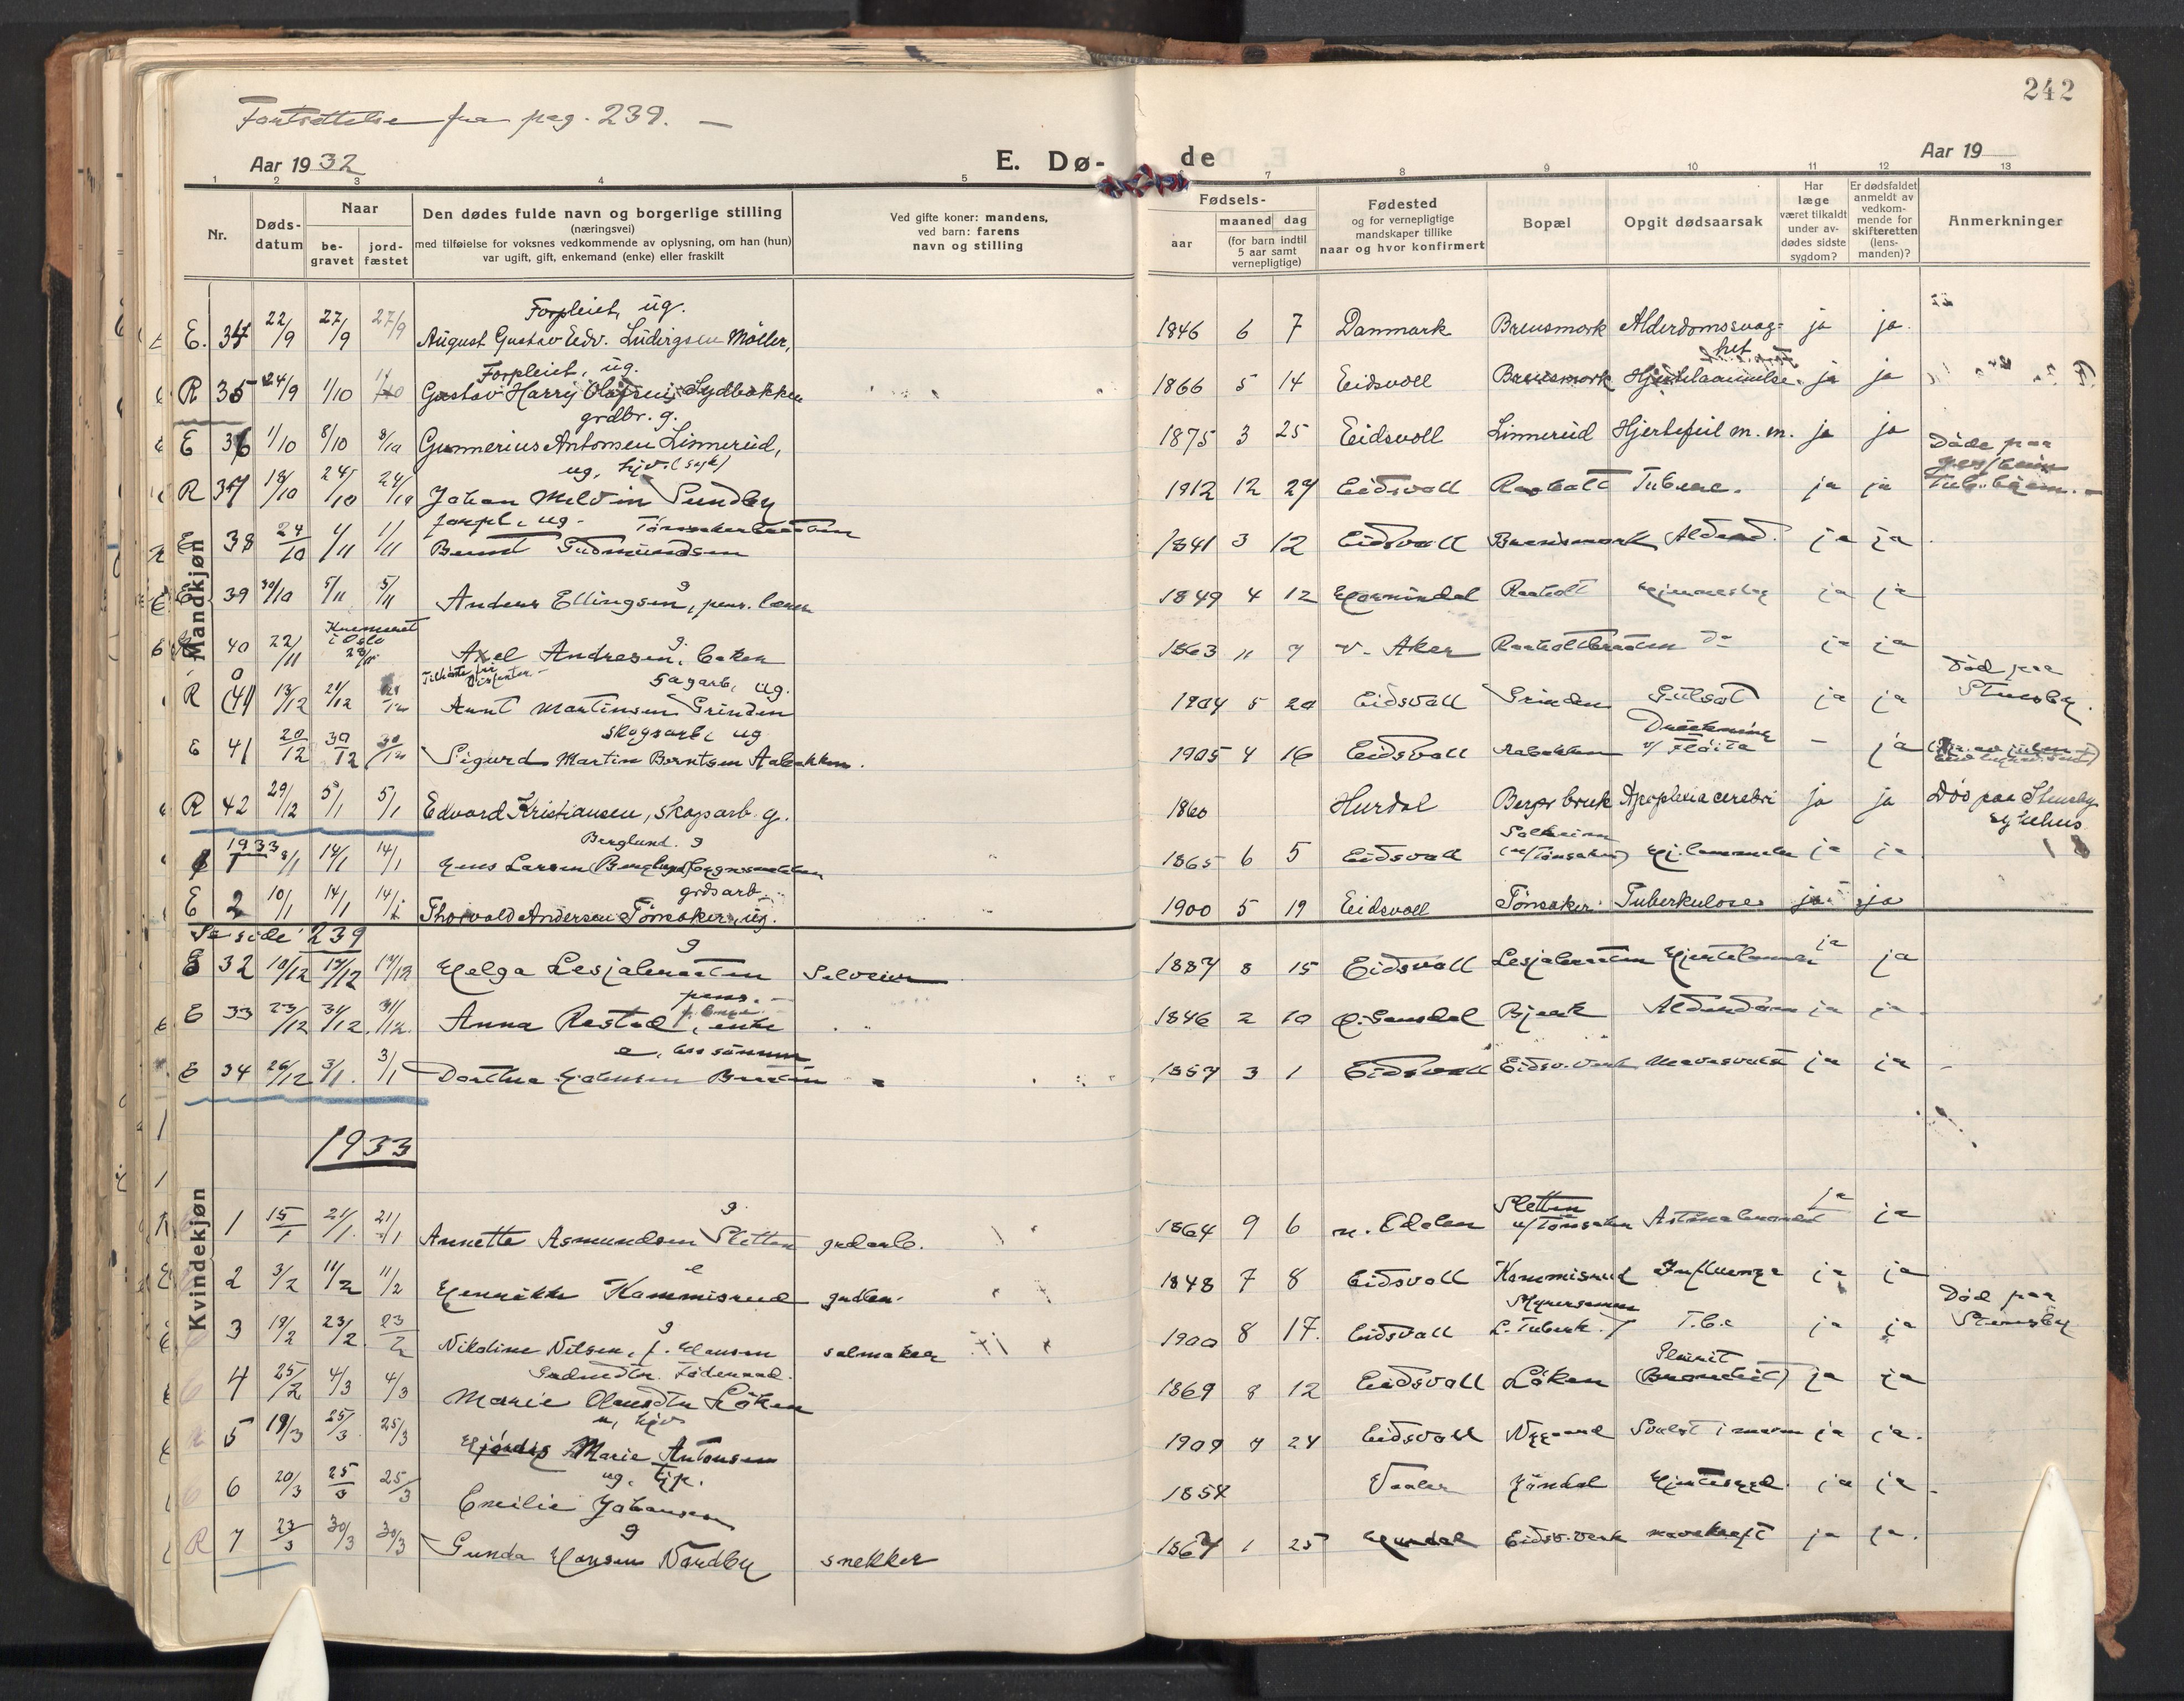 242
Fortsættelse fra pag. 239. —
Aar 1932
E. Dø-
de
Aar 19
1 2 3 4 5 7 8 9 10 11 12 13
Nr.
Døds-
datum
Naar
be-
gravet
jord-
fæstet
Den dødes fulde navn og borgerlige stilling
(næringsvei)
med tilføielse for voksnes vedkommende av oplysning, om han (hun)
var ugift, gift, enkemand (enke) eller fraskilt
Ved gifte koner: mandens,
ved barn: farens
navn og stilling
Fødsels-
aar
maaned dag
(for barn indtil
5 aar samt
vernepligtige)
Fødested
og for vernepligtige
mandskaper tillike
naar og hvor konfirmert
Bopæl
Opgit dødsaarsak
Har
læge
været tilkaldt
under av-
dødes sidste
sygdom?
Er dødsfaldet
anmeldt av
vedkom-
mende for
skifteretten
(lens-
manden)?
Anmerkninger
Mandkjøn
Forpleiet, ug.
E. 34 22/9 27/9 27/9 August Gustav Edv. Ludvigsen Møller, 1846 6 7 Danmark Brensmork Alderdomssvag-
het ja ja.
Forpleiet, ug.
R 35 24/9 1/10 1/10 Gustav Harry Olafsen Lydbakken 1866 5 14 Eidsvoll Brensmork ja ja
grdbr. g.
E 36 1/10 8/10 8/10 Gunnerius Antonsen Linnerud, 1875 3 25 Eidsvoll Linnerud Hjertefeil m. m. ja ja
ug.
R 37 18/10 24/10 24/10 Johan Melvin Sundby 1912 12 29 Eidsvoll Raaholt Tuberc. ja ja Døde paa
Tub.hjem. —
forpl., ug. Tønsakerbraaten
E 38 24/10 1/11 1/11 Bernt Gudmundsen 1841 3 12 Eidsvoll Brensmork Alderd. ja ja
g
E 39 30/10 5/11 5/11 Anders Ellingsen, pens. lærer 1849 4 12 Hornindal Raaholt ja ja
Kremeret
i Oslo
g.
40 22/11 28/11 Axel Andresen, baker 1863 11 7 V. Aker Raaholtbraaten do ja ja
Tilhører
Dissenter. —
Sagarb, ug.
R (41 13/12 21/12 Martinsen Grinden 1904 5 20 Eidsvoll Grinden Gulsot ja ja Død paa
Stensby.
skogsarb, ug
E 41 20/12 30/12 30/12 Sigurd Martin Berntsen Aabakken. 1905 4 16 Eidsvoll Aabakken Drukning
v/ Fløita — ja
R 42 29/12 5/1 5/1 Edvard Kristiansen, skogarb. g. 1860 Hurdal Bergs bruk Apoplexia cerebri ja ja Død paa Stensby
sykehus
1933
Berglund. g
1 8/1 14/1 14/1 Jens Larsen 1865 6 5 Eidsvoll Solheim
(u/Tønsaker) ja ja
grdsarb.
E 2 10/1 14/1 14/1 Thorvald Andersen Tønsaker, ug. 1900 5 19 Eidsvoll Tønsaker Tuberkulose ja ja
Se side 239
g
E 32 10/12 17/12 17/12 Helga Lesjabraaten Selveier 1887 8 15 Eidsvoll Lesjabraaten Hjertelammelse ja ja
pens.
E 33 23/12 31/12 31/12 Anna Restad, enke 1846 2 10 Ø. Gausdal Bjerk Alderdom ja ja
E 34 26/12 3/1 3/1 Dorthea Johnsen Braaten 1857 3 1 Eidsvoll Eidsv. Verk Mavesvulst ja ja
1933
Kvindekjøn
g.
1 15/1 21/1 21/1 Annette Asmundsen Sletten grdarb. 1864 9 6 n. Odalen Sletten
u/Tønsaker ja ja
e
2 3/2 11/2 11/2 Henrikke Kommisrud grdbr. 1848 7 8 Eidsvoll Kommisrud Influenza ja ja
g
3 19/2 23/2 23/2 Nikoline Nilsen, f. Hansen salmaker 1900 8 17. Eidsvoll L. Tuberk. T.b.c ja ja Død paa
Stensby
4 25/2 4/3 4/3 Marie Olausdtr Løken 1869 8 12 Eidsvoll Løken Pleurit
(Bronchit) ja ja
R 5 19/3 25/3 25/3 Hjørdis Marie Antonsen 1909 7 24 Eidsvoll Nygaard Svulst i maven ja ja.
ug. tjp.
6 20/3 25/3 25/3 Emilie Johansen 1854 Vaaler Jøndal ja ja
g
R 7 23/3 30/3 30/3 Gunda Hansen Nordby snekker 1867 1 25 Hurdal Eidsv. Verk mavekreft ja ja.